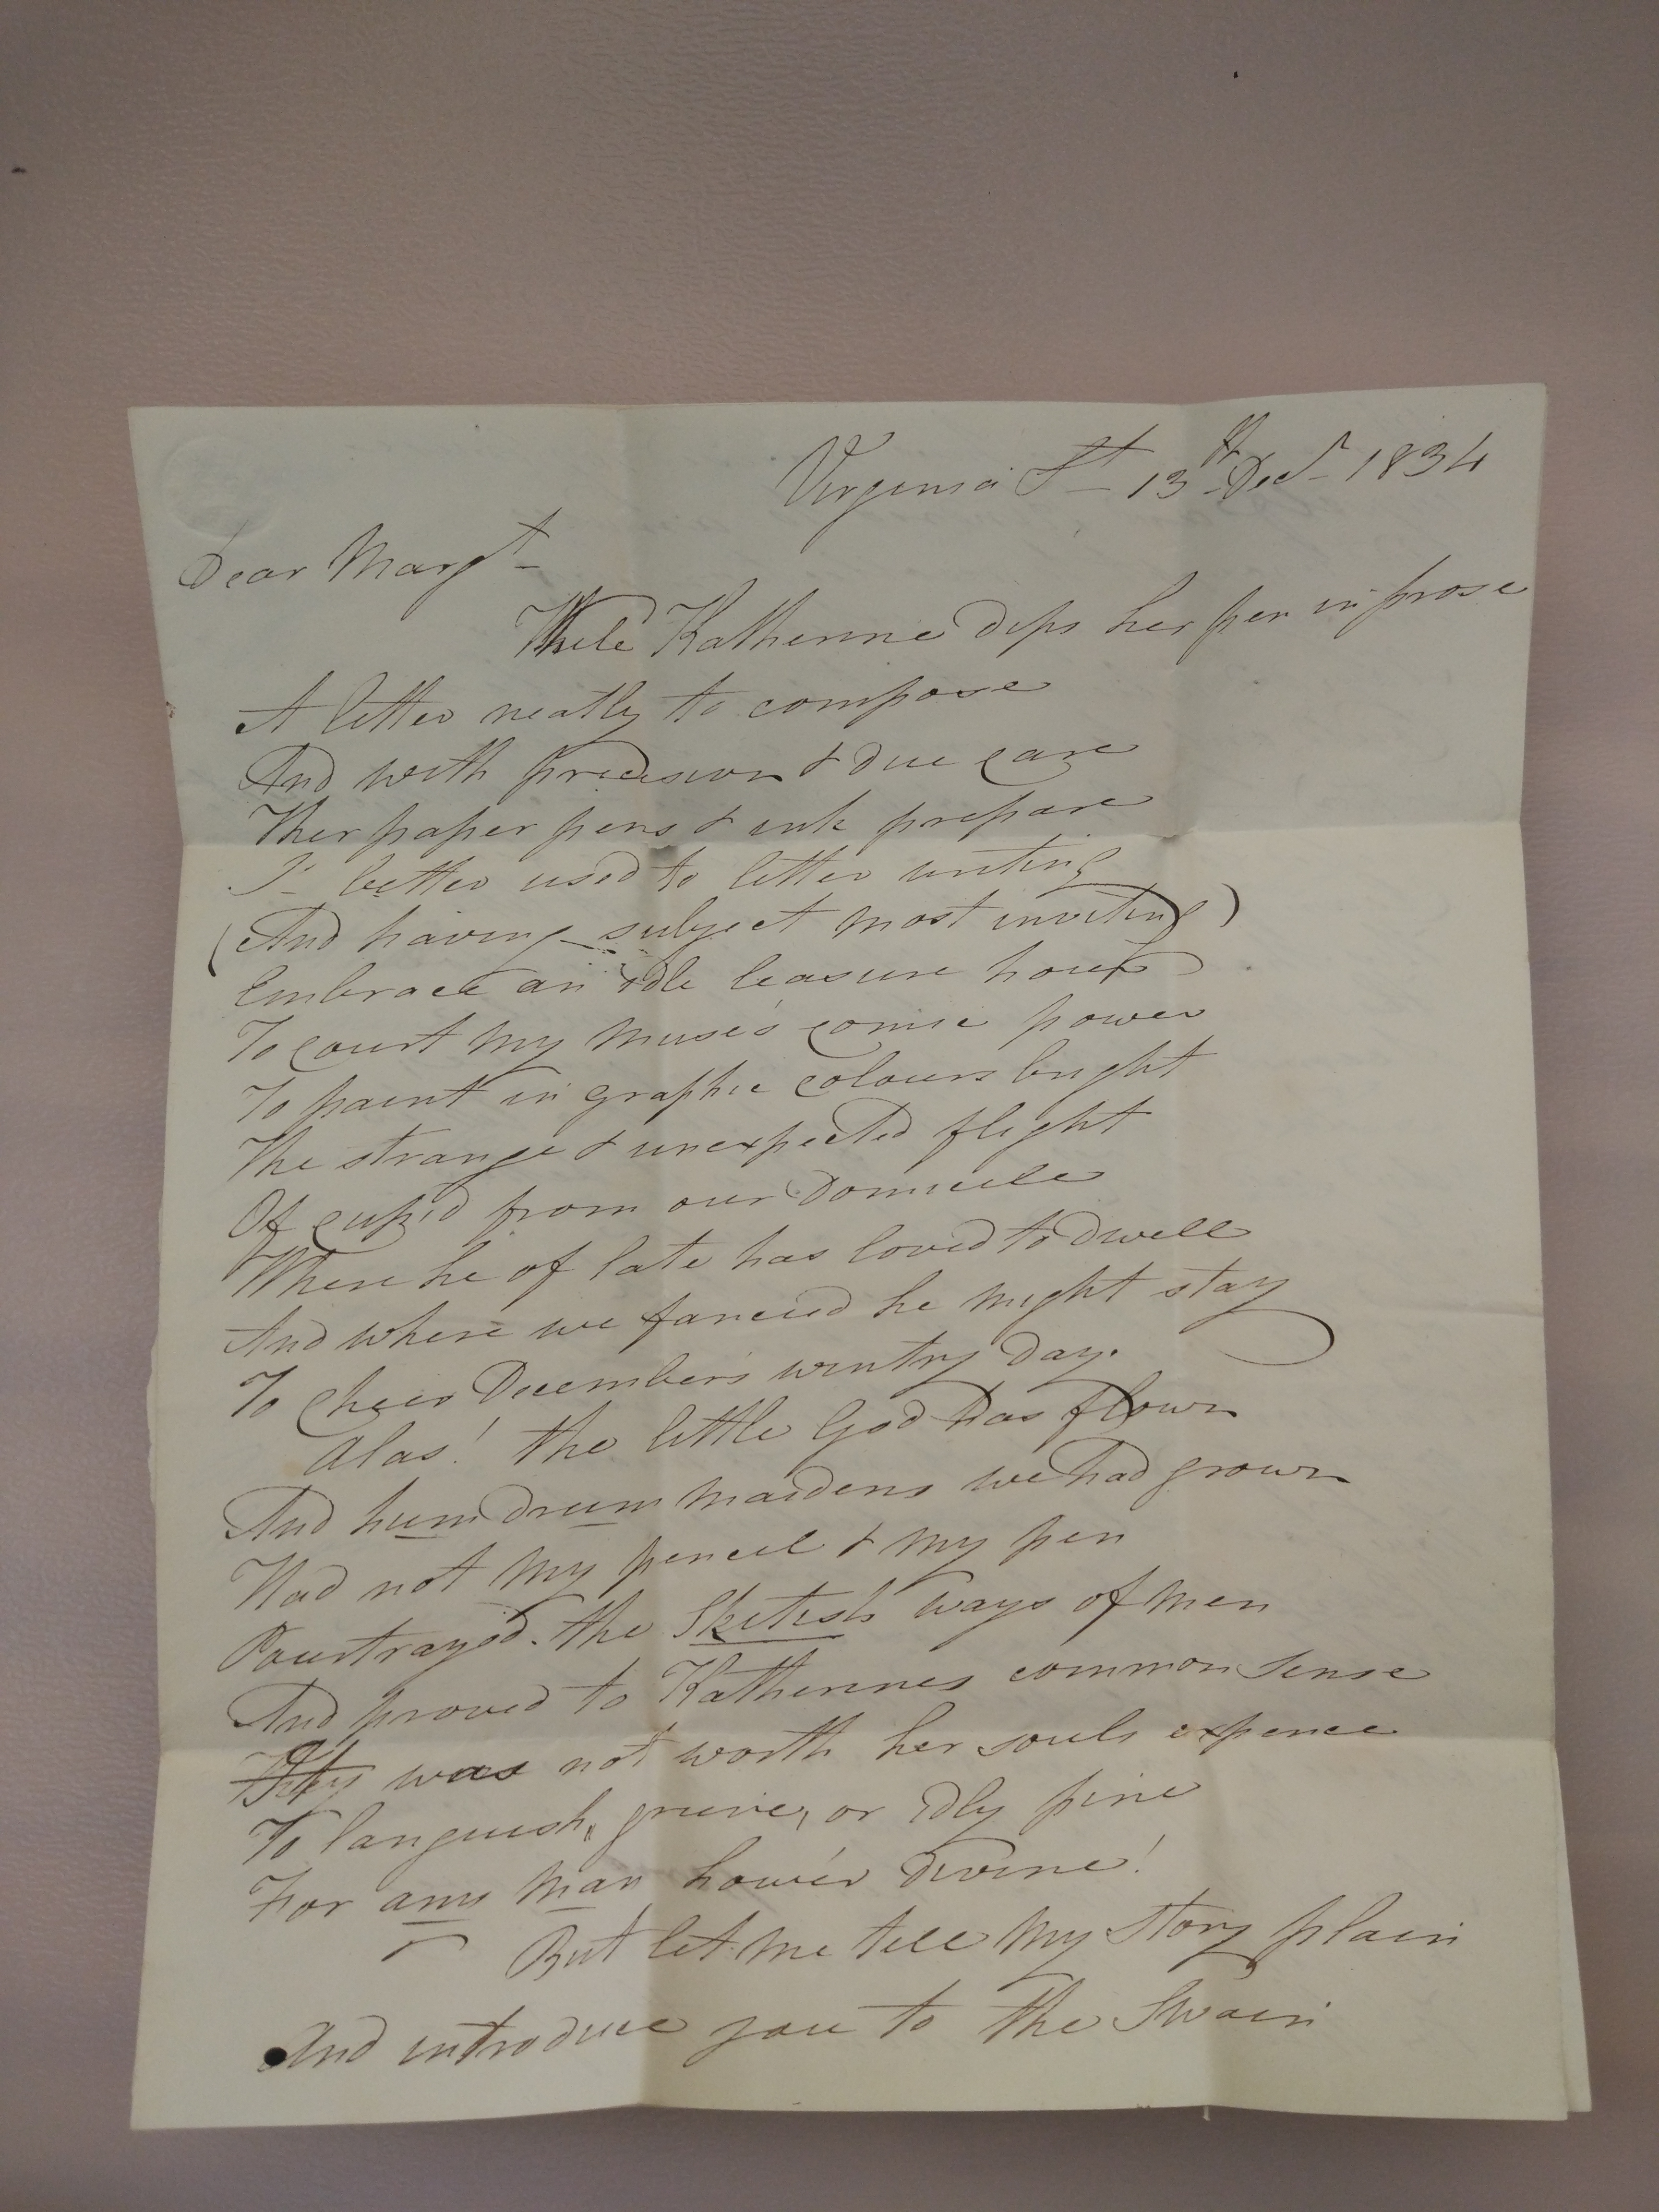 Virginia St - 13th Decr 1834
Dear Margt -
While Katherine dips her pen in prose
A letter neatly to compose
And with precision & due care
Her paper pens & ink prepare
I - better used to letter writing
(And having subject most inviting)
Embrace an idle leasure hour
To court my muse's comic power
To paint in graphic colours bright
The strange & unexpected flight
Of cupid from our Domicile
Where he of late has loved to dwell
And where we fancied he might stay
To cheer December's wintry day.
Alas! the little God has flown
And humdrum maidens we had grown
Had not my pencil & my pen
Pourtrayed the Skitish ways of men
And proved to Katherines common sense
was not worth her souls expence
To languish, grieve, or idly pine
For any man howe'er divine!
But let me tell my story plain
And introduce you to the Swain